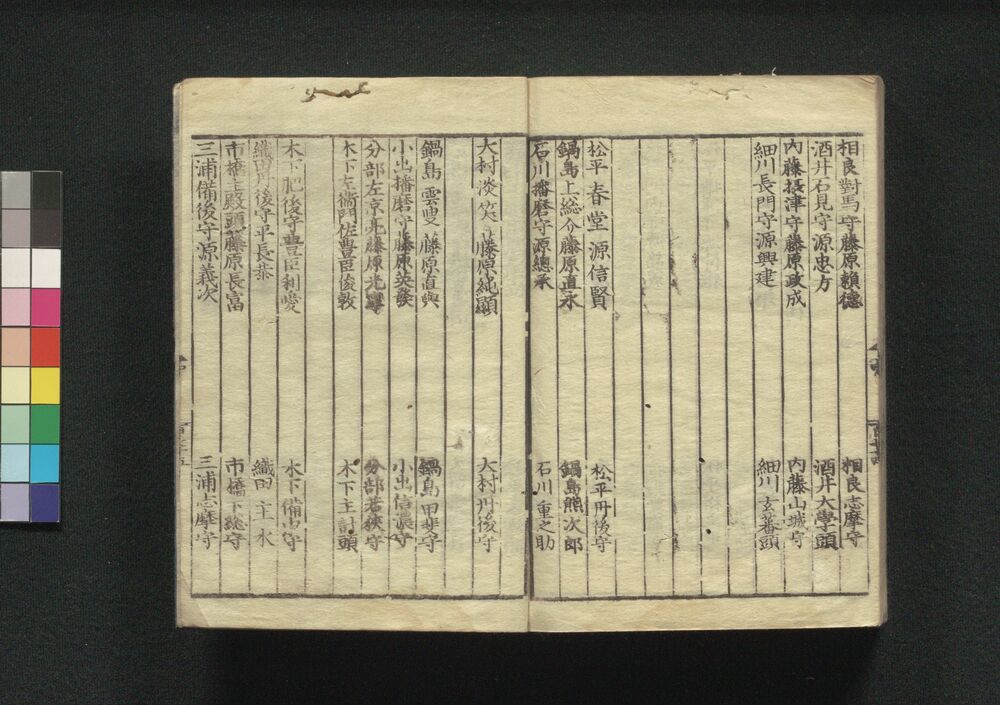 相良對馬守藤原賴德 相良志摩守
酒井石見守源忠方 酒井大學頭
内藤摂津守藤原政成 内藤山城守
細川長門守源興建 細川玄蕃頭
松平春堂源信賢 松平丹後守
鍋島上総介藤原直永 鍋島熊次郎
石川播磨守源總承 石川重之助
大村淡笑藤原純顯 大村丹後守
鍋島雲叟藤原直與 鍋島甲斐守
小出播磨守藤原英發 小出信濃守
分部左京亮藤原光寧 分部若狭守
木下左衛門佐豊臣俊敦 木下主計頭
木下肥後守豊臣利愛 木下備中守
織田豊後守平長恭 織田主水
市橋主殿頭藤原長富 市橋下総守
三浦備後守源義次 三浦志摩守